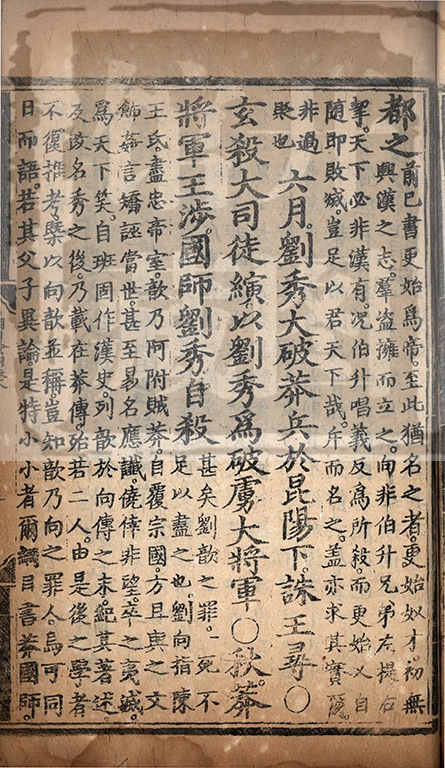 都之前已書更始爲帝。至此猶名之者。更始奴才。初無
興漢之志。羣盜擁而立之。向非伯升兄弟左提右
挈。天下必非漢有。況伯升唱義反爲所殺。而更始以自
隨即敗滅。豈足以君天下哉。斥而名之。蓋亦求其實爾
非過
貶也
六月。劉秀大破莽兵於昆陽下。誅王尋○
玄殺大司徒縯以劉秀爲破虜大將軍○秋。莽
將軍王涉。國師劉秀自殺
甚矣劉歆之罪。一死不
足以盡之也。劉向指陳
王氏盡忠帝室。歆乃阿附賊莽。自覆宗國。方且與之文
飾姦言。矯誣當世。甚至易名應讖。僥倖非望。卒之夷滅。
爲天下笑。自班固作漢史。列歆於向傳之末。紀其著述。
及改名秀之後。乃載在莽傳。殆若二人。由是後之學者
不復推考。槩以向歆並稱。豈知歆乃向之罪人。烏可同
日而語。若其父子異論。是特小小者爾。綱目書莽國師。